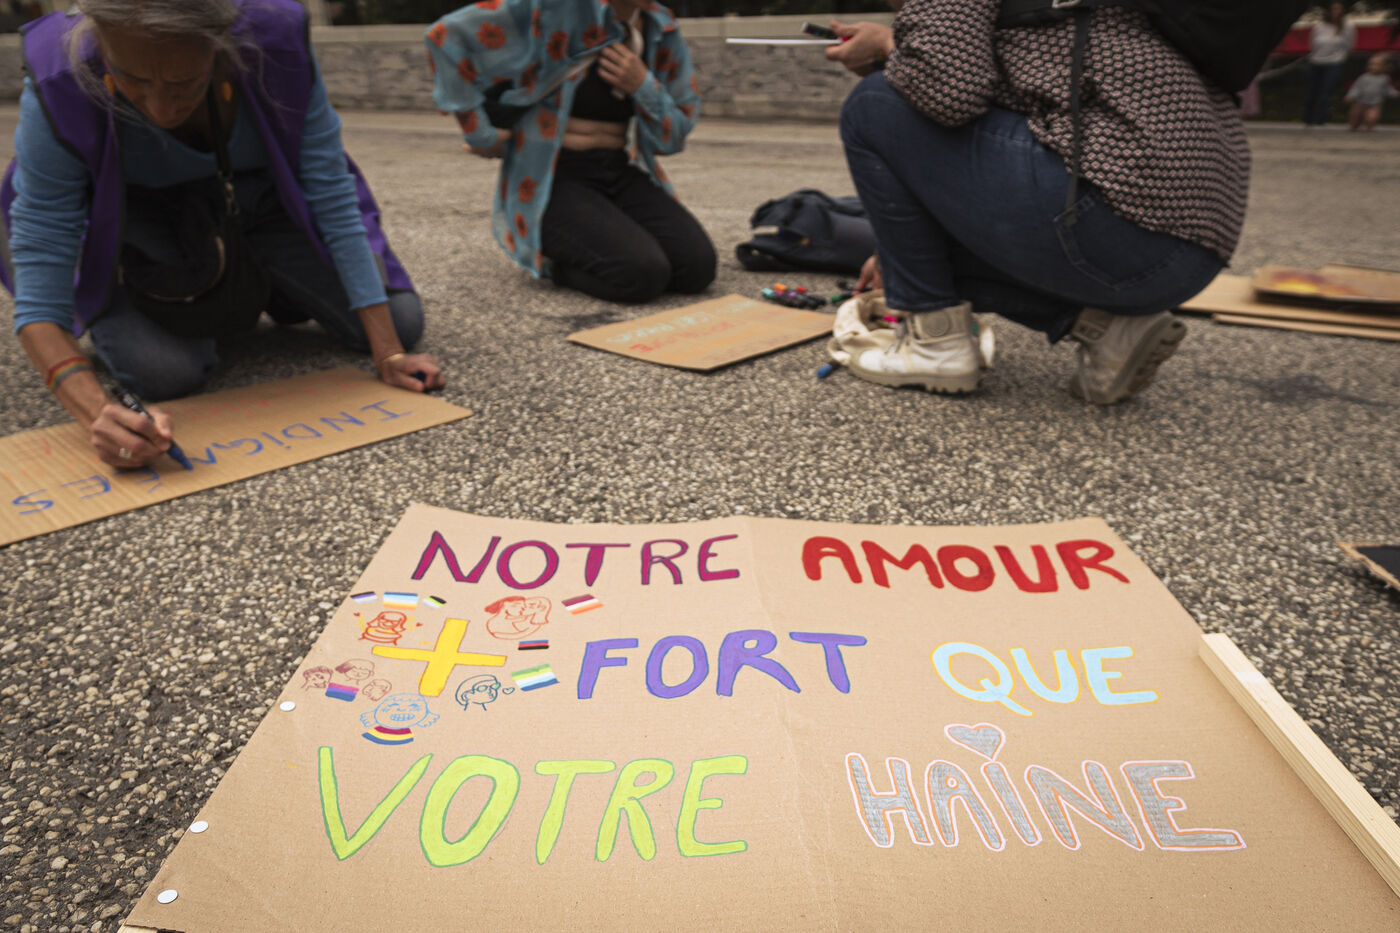 NOTRE AMOUR
+ FORT QUE
VOTRE HAINE
INDiGNéES